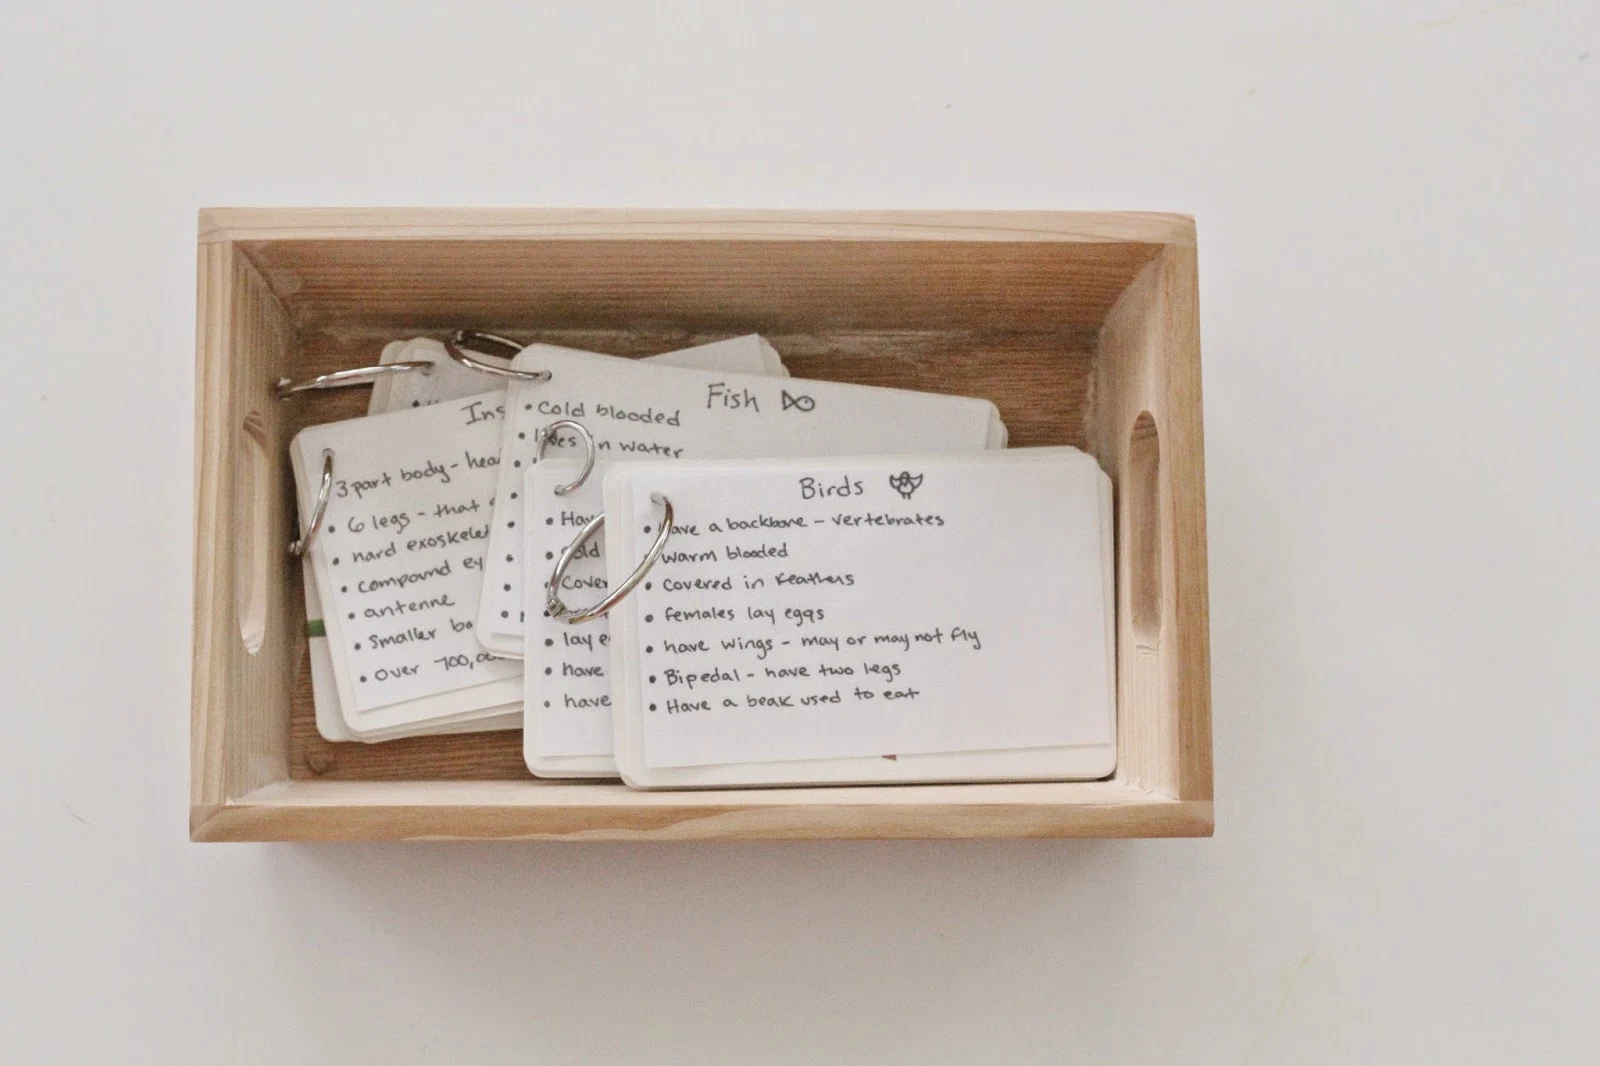 Ins
3 part body - hea
• 6 legs - that
• hard exoskelet
• compound ey
• antenne
• Smaller bo
• Over 700,00
Fish
• Cold blooded
• lives in water
• Hav
• Cold
• Cover
• lay e
• have
• have
Birds
• Have a backbone - vertebrates
• warm blooded
• covered in feathers
• females lay eggs
• have wings - may or may not fly
• Bipedal - have two legs
• Have a beak used to eat